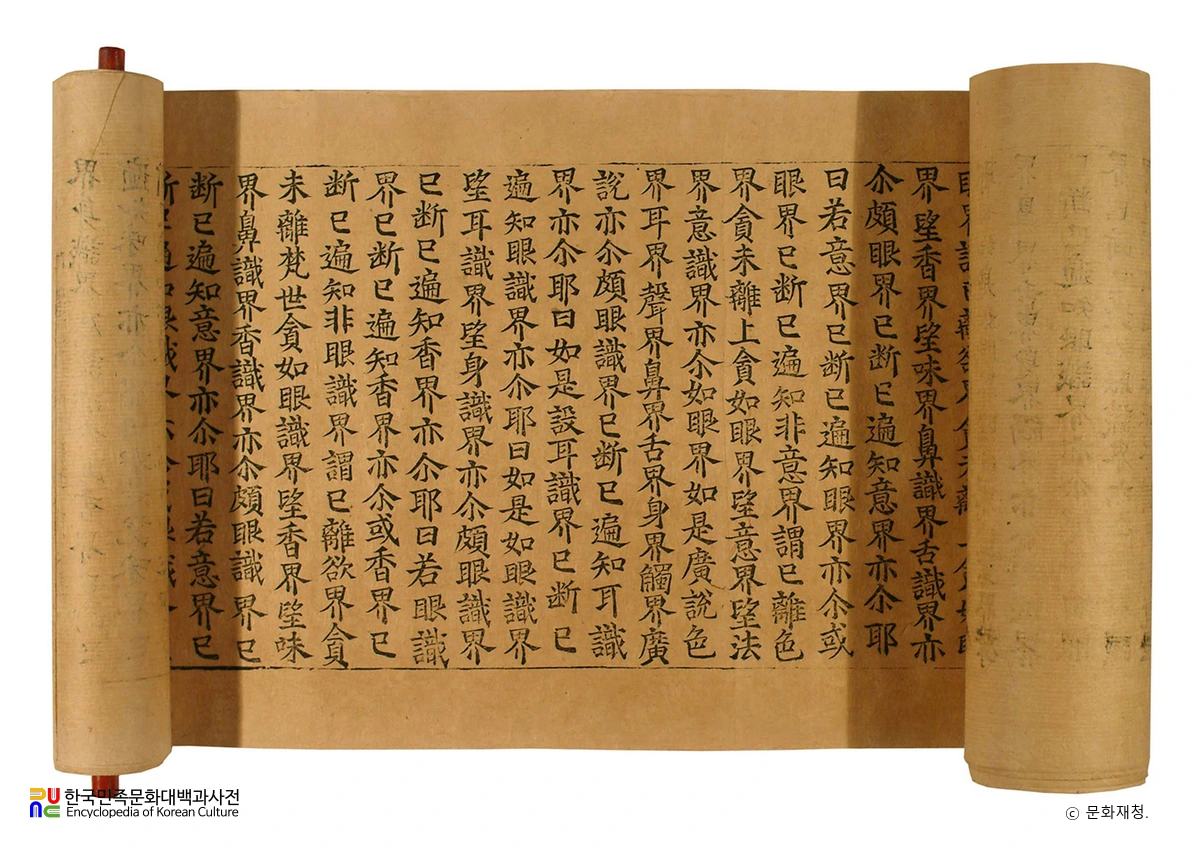 界望香界望味界鼻識界舌識界亦
尒頗眼界已断已遍知意界亦尒耶
曰若意界已断已遍知眼界亦尒或
眼界已断已遍知非意界謂已離色
界貪未離上貪如眼界望意界望法
界意識界亦尒如眼界如是廣說色
界耳界聲界鼻界舌界身界觸界廣
說亦尒頗眼識界已断已遍知耳識
界亦尒耶曰如是設耳識界已断已
遍知眼識界亦尒耶曰如是如眼識界
望耳識界望身識界亦尒頗眼識界
已断已遍知香界亦尒耶曰若眼識
界已断已遍知香界亦尒或香界已
断已遍知非眼識界謂已離欲界貪
未離梵世貪如眼識界望香界望味
界鼻識界香識界亦尒頗眼識界已
断已遍知意界亦尒耶曰若意界已
界身識界
한국민족문화대백과사전
Encyclopedia of Korean Culture
ⓒ 문화재청.